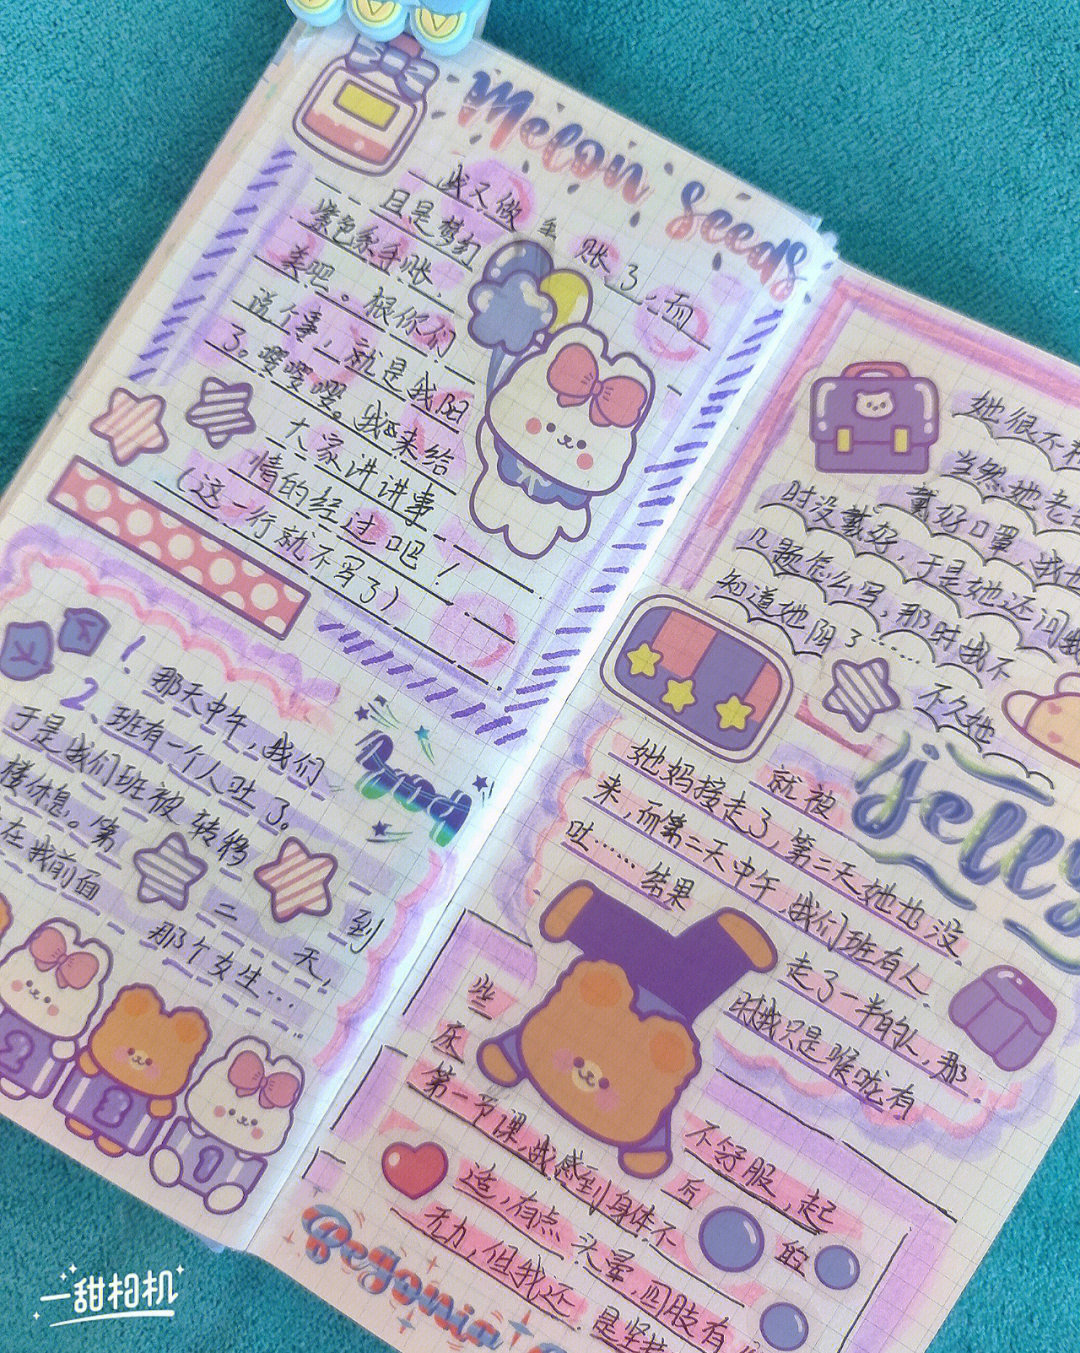 Melon seeds
我又做手账了,而
且是梦幻
紫色系手账,
美吧。跟你们
说个事,就是我阳
了。嘤嘤嘤。我来给
大家讲讲事
情的经过吧!
(这一行就不写了)
1、那天中午,我们
2、班有一个人吐了。
于是我们班被转移到
楼休息。第二天,
在我前面那个女生…
她很不
当然她老
戴好口罩,我
时没戴好,于是她还问我
几题怎么写,那时我不
知道她阳了……
不久她
jelly
就被
她妈接走了,第二天她也没
来,而第二天中午,我们班有人
吐……结果
走了一半的人,那
时我只是喉咙有
些
不舒服,起
床后
第一节课,我感到身体不
适,有点头晕,四肢有
无力,但我还是坚持
的
Begonia
3
3
1
甜相机